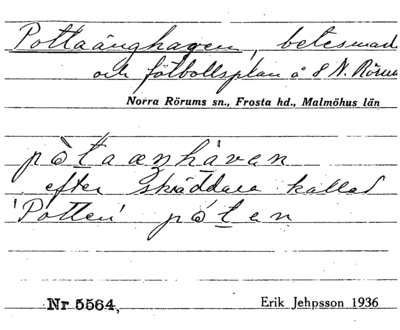 Pottaänghagen, betesmark
och fotbollsplan å 8 N. Rörum
Norra Rörums sn., Frosta hd., Malmöhus län
pòtaæŋhàvan
efter skräddare kallad
'Potten' pòten
Nr 5564,
Erik Jehpsson 1936